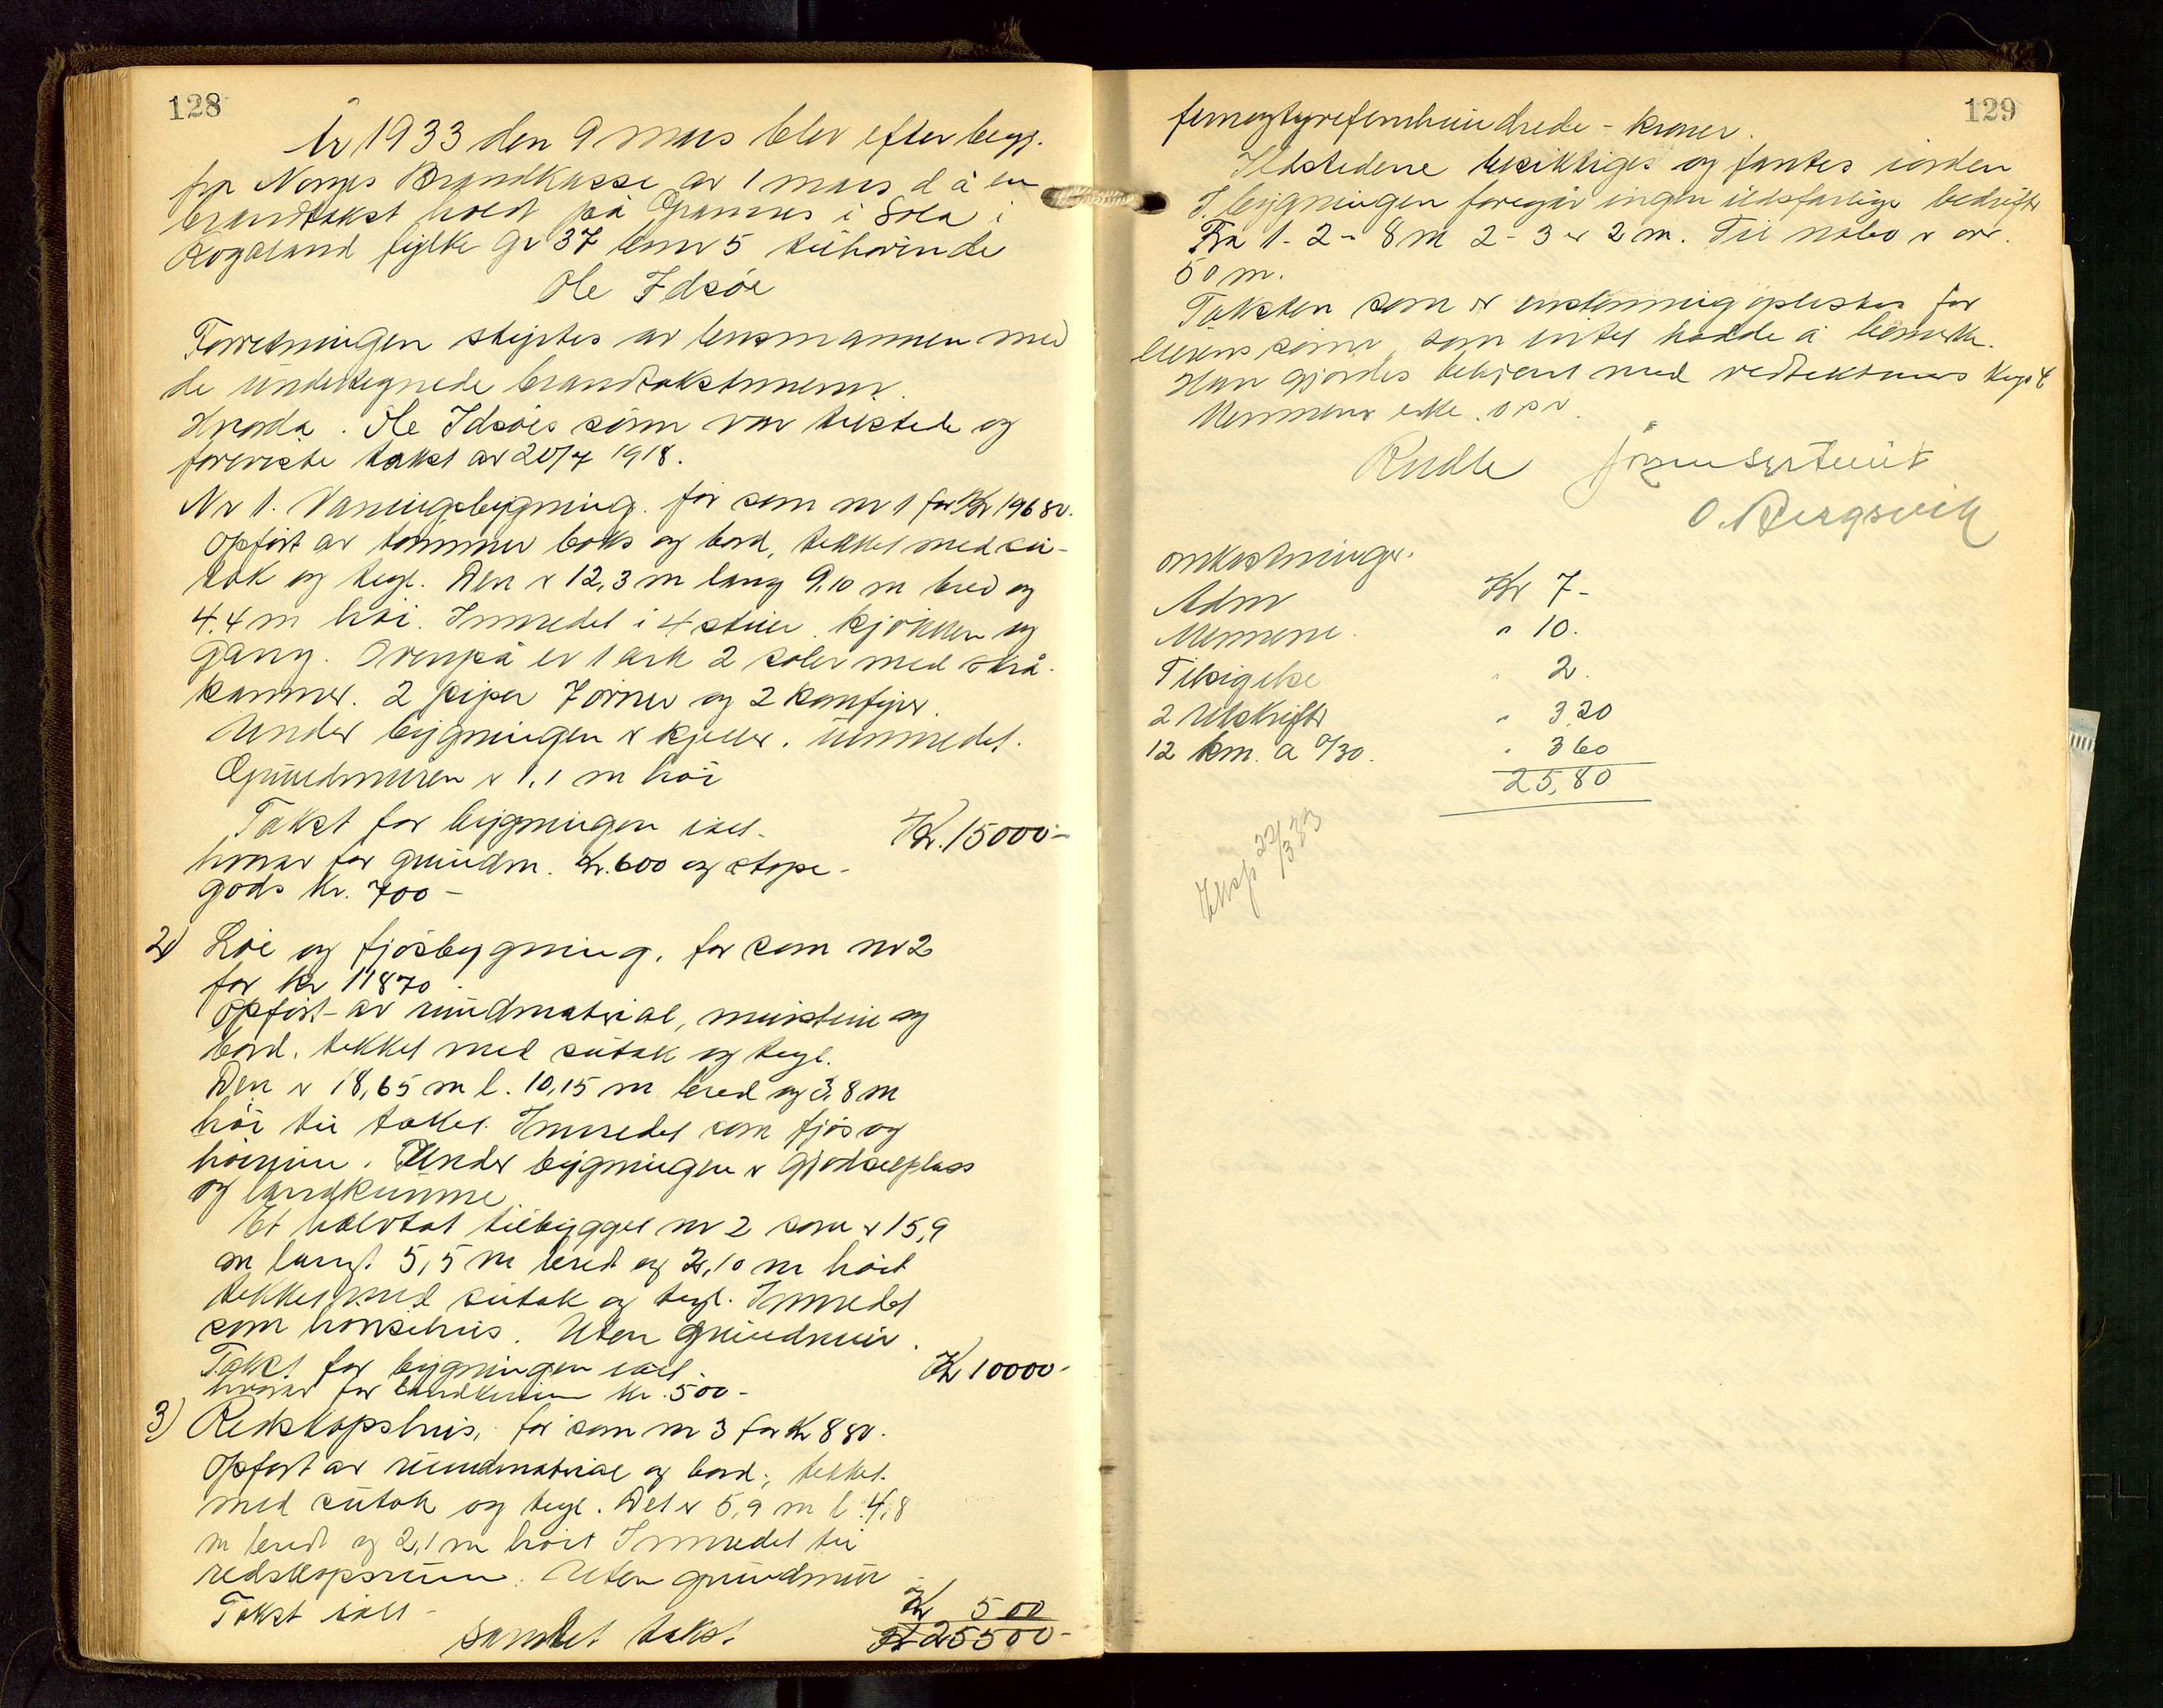 128
År 1933 den 9 mars blev efter begj.
fra Norges Brandkasse av 1 mars d å en
brandtakst holdt på Grannes i Sola i
Rogaland fylke gr 37 bnr 5 tilhørende
Ole Idsøe
Forretningen styrtes av lensmannen med
de undertegnede brandtakstmenn.
Ole Idsøes sønn var tilstede og
foreviste takst av 20/7 1918.
Nr 1. Vaningsbygning. før som nr 1 for Kr 19680.
Opført av tømmer boks og bord, tekket med su-
tak og tegl. Den er 12,3 m lang 9,10 m bred og
4,4 m høi. Innredet i 4 stuer. kjøkken og
gang. Ovenpå er 1 ark 2 soler med skrå-
kammer. 2 piper 7 ovner og 2 komfyrer.
Under bygningen er kjeller. uinnredet.
Grundmuren er 1,1 m høi
Takst for bygningen ialt - Kr. 15000-
hvorav for grundm. Kr. 600 og støpe-
gods kr. 700-
2) Løe og fjøsbygning, før som nr 2
for kr 11870.
Opført av rundmaterial, murstein og
bord. tekket med sutak og tegl.
Den er 18,65 m l. 10,15 m bred og 3,8 m
høi til taket. Innredet som fjøs og
høirum. Under bygningen er gjødselplass
og landkumme.
Et halvtat tilbygget nr 2 som er 15,9
m langt 5,5 m bred og 2,10 m høit
tekket med sutak og tegl. Innredet
som hønsehus. Uten grundmur.
Takst for bygningen ialt. Kr 10000-
hvorav for landkum kr. 500-
3) Redskapshus, før som nr 3 for kr 880.
Opført av rundmaterial og bord, tekket
med sutak og tegl. Det er 5,9 m l. 4,8
m bredt og 2,1 m høit Innredet til
redskapsrum. Uten grundmur
Takst ialt - Kr 500
Samlet takst Kr 25500-
129
femogtyvefemhundrede - kroner.
Ildstedene besiktiges og fantes iorden
I bygningen foregår ingen ildsfarlige bedrifter
Fra 1 - 2 - 8 m 2 - 3 er 2 m. Til nabo er over
50 m.
Taksten som er enstemmig oplestes for
eierens sønn, som intet hadde å bemerke.
Han gjordes bekjent med vedtektenes kap 6
Mennene erkl. o s v.
O. Bergsvik
omkostninger.
Adm Kr 7-
Mennene. " 10.
Tilsigelse " 2.
2 Utskrifter " 3 20
12 km. a 0/30. " 3 60
25,80
Eksp 22/3 33